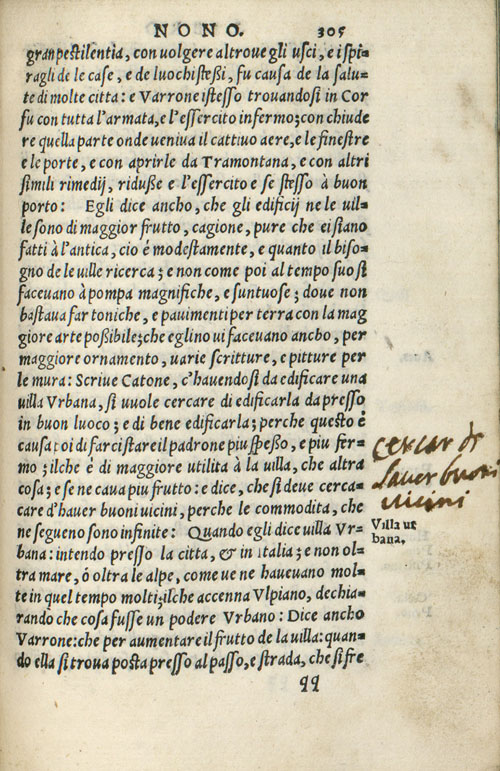 NONO. 305
gran pestilentia, con volgere altroue gli usci, e i spi=
ragli de le case, e de luochi steßi, fu causa de la salu=
te di molte citta: e Varrone istesso trouandosi in Cor
fu con tutta l'armata, e l'essercito infermo; con chiude
re quella parte onde ueniua il cattiuo aere, e le finestre
e le porte, e con aprirle da Tramontana, e con altri
simili rimedij, riduße e l'essercito e se stesso à buon
porto: Egli dice ancho, che gli edificij ne le uil=
le sono di maggior frutto, cagione, pure che ei siano
fatti à l'antica, cio è modestamente, e quanto il biso=
gno de le uille ricerca; e non come poi al tempo suo si
faceuano à pompa magnifiche, e suntuose; doue non
bastaua far toniche, e pauimenti per terra con la mag
giore arte poßibile; che eglino ui faceuano ancho, per
maggiore ornamento, uarie scritture, e pitture per
le mura: Scriue Catone, c'hauendosi da edificare una
uilla Vrbana, si uuole cercare di edificarla da presso
in buon luoco; e di bene edificarla; perche questo è
causa poi di farci stare il padrone piu speßo, e piu fer=
mo; ilche è di maggiore utilità à la uilla, che altra
cosa; e se ne caua piu frutto: e dice, che si deue cerca=
care d'hauer buoni uicini, perche le commodita, che
ne segueno sono infinite: Quando egli dice uilla Vr=
bana: intendo presso la citta, & in Italia; e non ol=
tra mare, ò oltra le alpe, come ue ne haueuano mol=
te in quel tempo molti; ilche accenna Vlpiano, dechia=
rando che cosa fusse un podere Vrbano: Dice ancho
Varrone: che per aumentare il frutto de la uilla: quan=
do ella si troua posta presso al passo, e strada, che si fre
qq
cercar di
hauer buoni
uicini
Villa ur
bana.